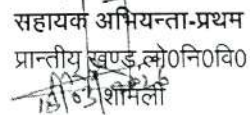 सहायक अभियन्ता-प्रथम
प्रान्तीय खण्ड,लो0नि0वि0
शामली